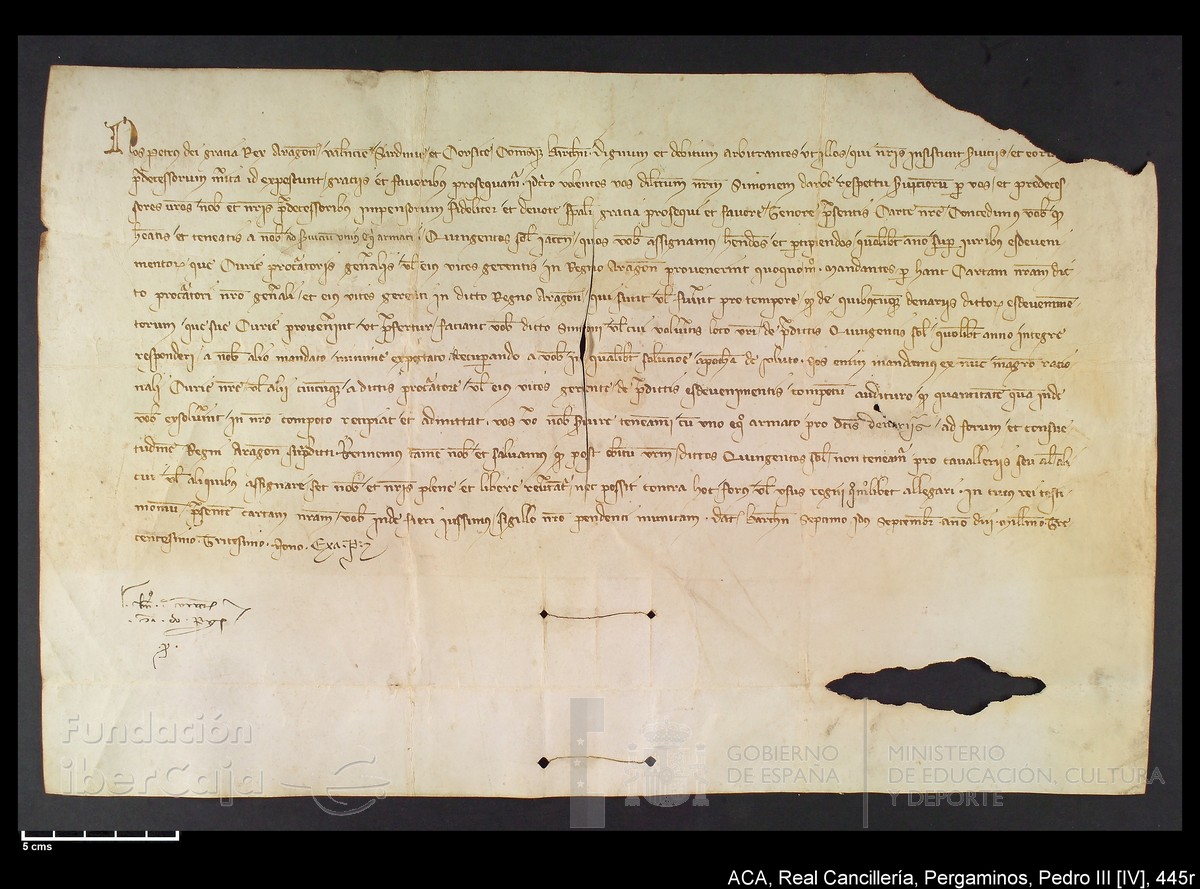 Nos Petrus dei gracia Rex Aragon, Valencie, Sardinie, et Corsice, Comesque Barchn. Dignum et debitum arbitrantes ut illos, qui nris insistunt serviciis, et eorum
predecessorum merita id exposcunt, graciis et favoribus prosequamur, idcirco volentes vos dilectum nrm Simonem respectu serviciorum per vos, et predeces
sores vros, nob et nris predecessoribus impensorum fideliter et devote spali gracia prosequi et favore, Tenore presentis Carte nre Concedimus vob qd
heatis et teneatis a nob ad servicium unius equi armati, Quingentos sol iaccen, quos vob assignamus hendos et percipiendos quolibet anno super iuribus esdeveni
mentor que Curie procuratoris generalis vel eius vices gerentis in Regno Aragon provenerint quoquomo. mandantes per hanc Cartam nram dic
to procuratori nro generali, et eius vices gerenti in dicto Regno Aragon, qui sunt vel fuerint pro tempore qd de quibuscumque denariis dictor esdevenimen
torum, que sue Curie provenerint, ut prefertur, faciant vob dicto Simoni vel cui volueritis loco vri, de predictis Quingentis sol, quolibet anno integre
responderi, a nob alio mandato minime expectato, Recuperando a vob in qualibet solucione apocham de soluto. Nos enim mandamus ex nunc magro racio
nali Curie nre vel alii cuicumque, a dictis procuratore vel eius vices gerente, de predictis esdevenimentis compotum audituro qd quantitatem quam inde
vob exsolverint, in nro compoto recipiat et admittat, vos vero nob servire teneamini cum uno equo armato pro dictis denariis, ad forum et consue
tudinem Regni Aragon supradicti. Retinemus tamen nob et salvamus qd post obitum vrm, dictos Quingentos sol non teneamur pro cavalleriis seu al ali
cui vel aliquibus assignare, set nob et nris plene et libere revertantur, nec possit contra hoc forus vel usus regni quomolibet allegari. In cuius rei testi
monium, presentem cartam nram, vob inde fieri iussimus, sigillo nro pendenti munitam. Dat Barchn Septimo Idus Septembr. anno dni Millmo Tre
centesimo Tricesimo Nono. Exa. P.
Fundación
iberCaja
GOBIERNO
DE ESPAÑA
MINISTERIO
DE EDUCACIÓN, CULTURA
Y DEPORTE
5 cms
ACA, Real Cancillería, Pergaminos, Pedro III [IV], 445r